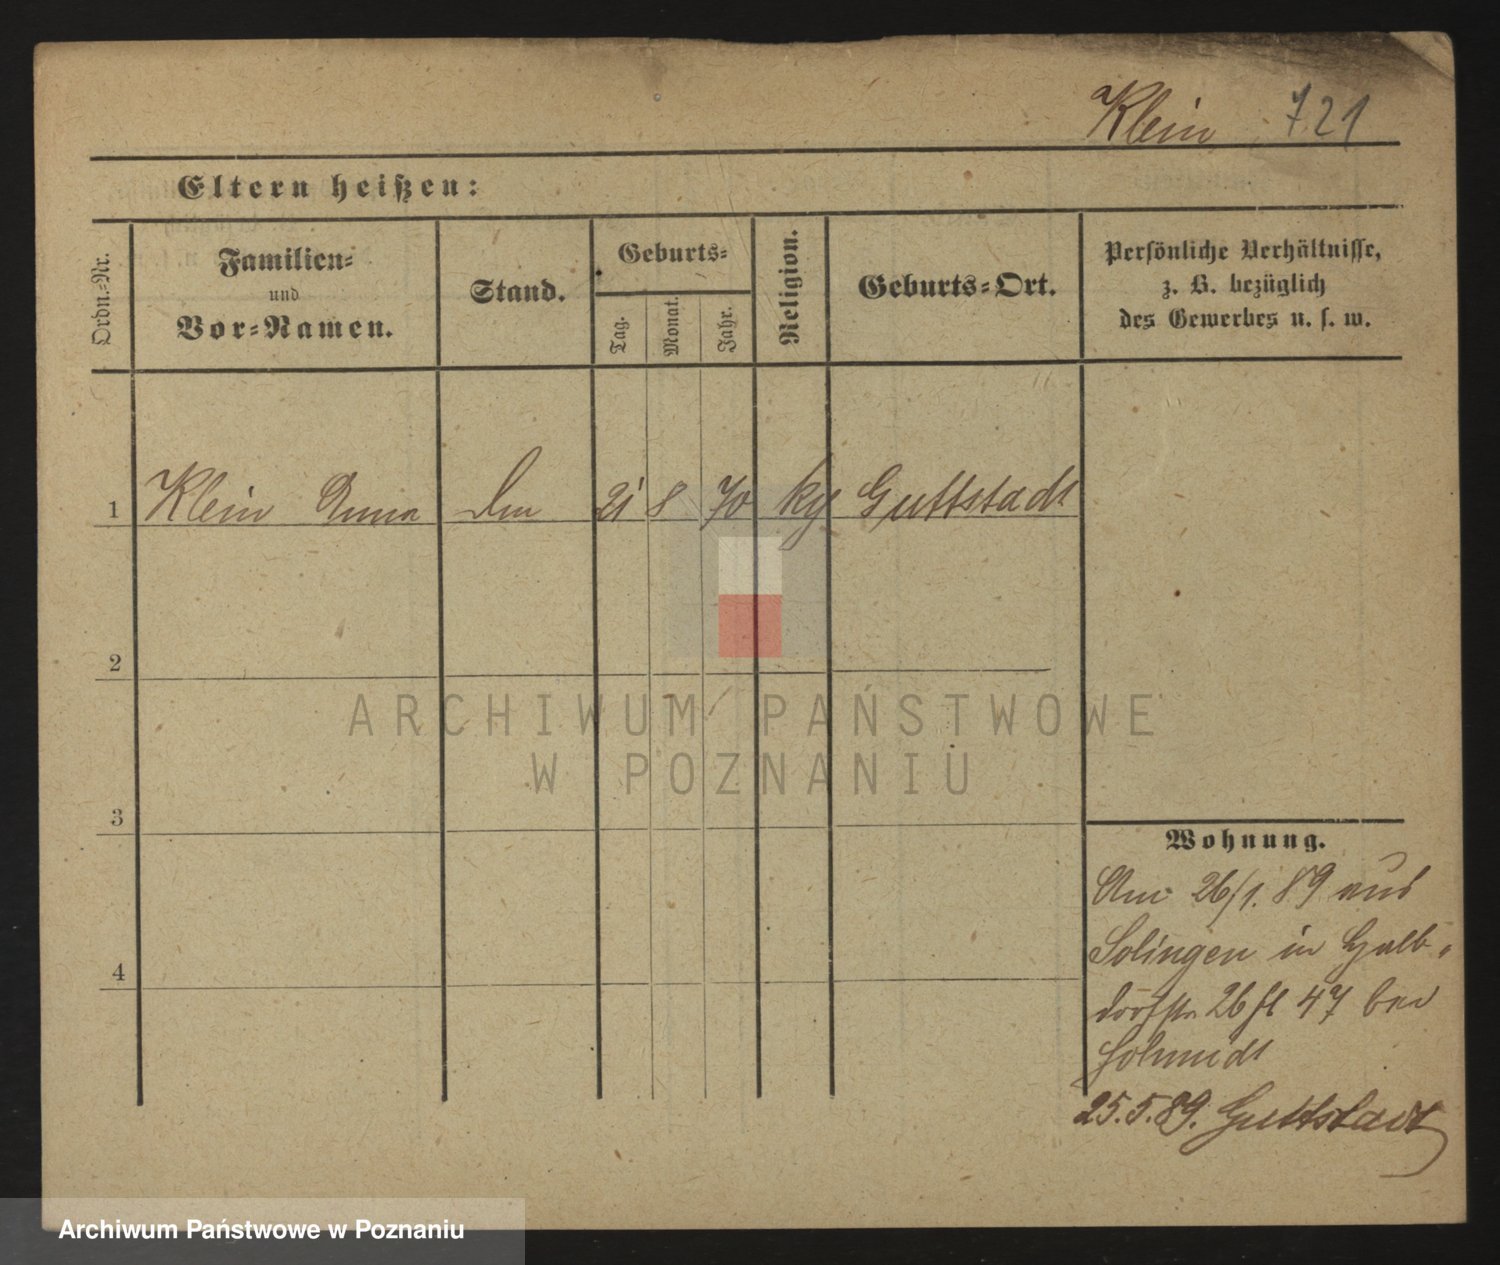 Klein 721
Eltern heißen:
Ordn.-Nr.
Familien-
und
Vor-Namen.
Stand.
Geburts-
Tag.
Monat.
Jahr.
Religion.
Geburts-Ort.
Persönliche Verhältnisse,
z. B. bezüglich
des Gewerbes u. s. w.
1 Klein Anna 21 8 70 Guttstadt
2
3
4
Wohnung.
Am 26/1. 89 aus
Solingen in Halb-
dorfstr 26 47 bei
Schmidt
25.5.89. Guttstadt
ARCHIWUM PAŃSTWOWE
W POZNANIU
Archiwum Państwowe w Poznaniu